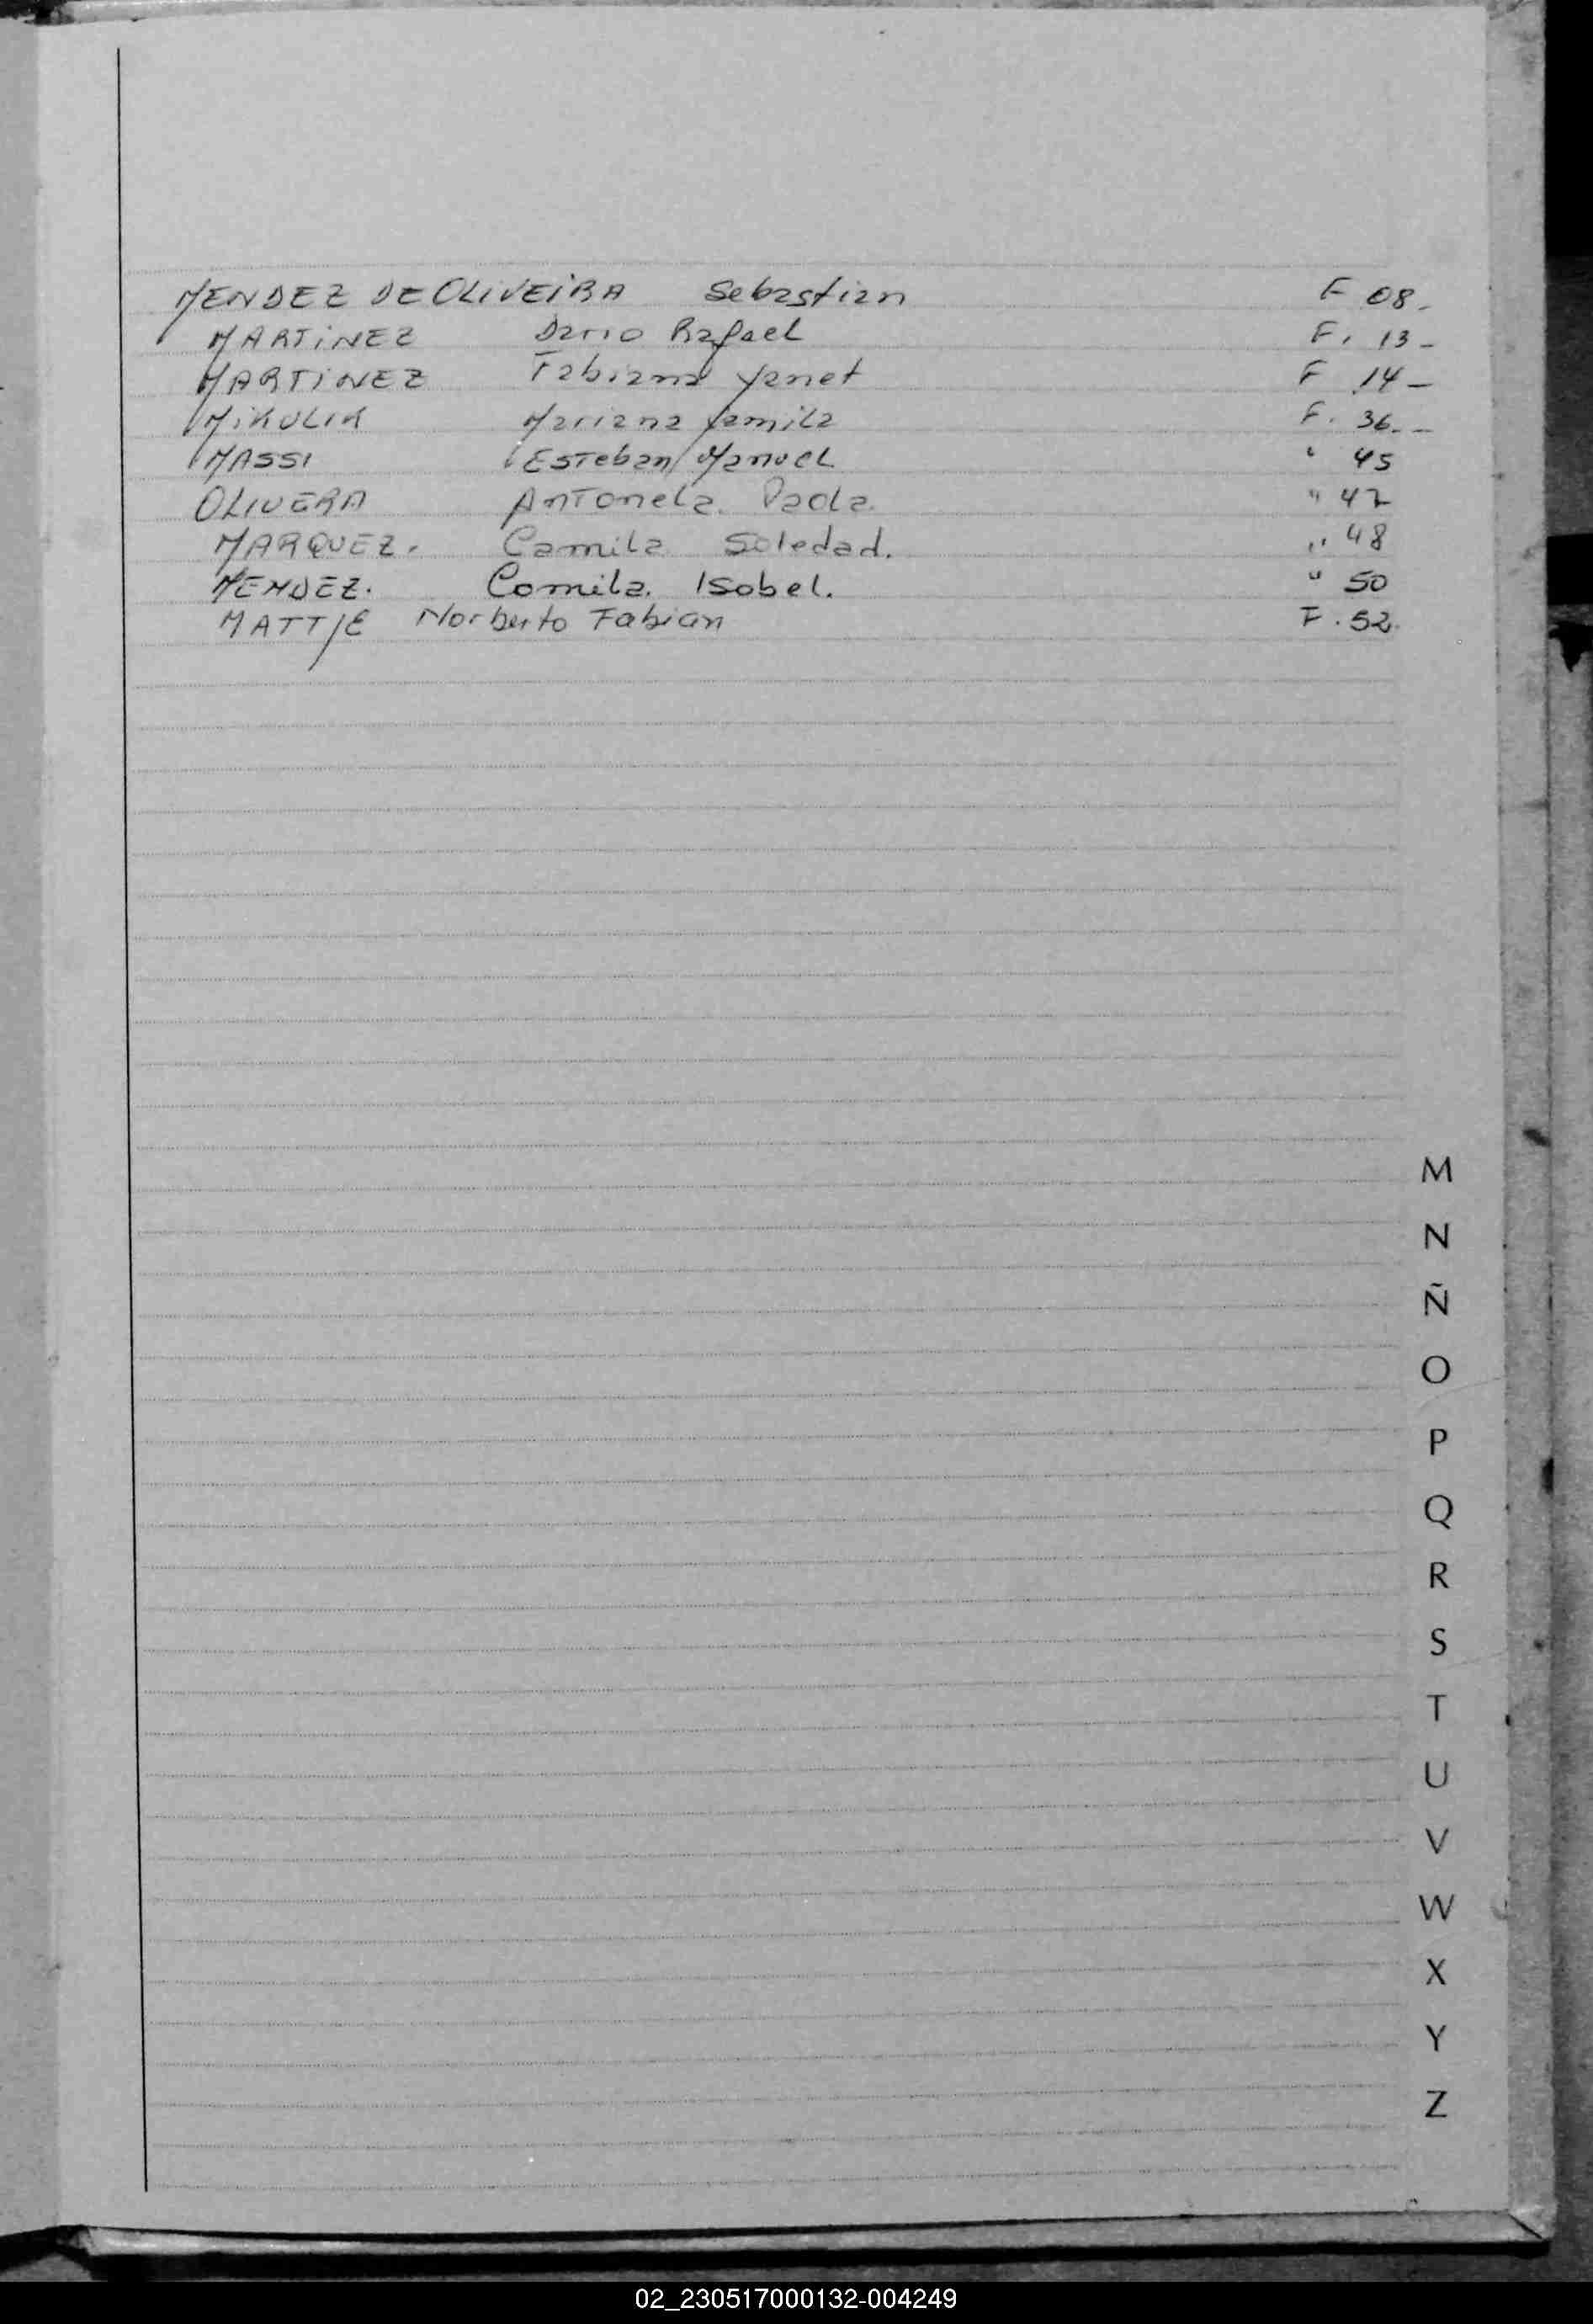 MENDEZ DE OLIVEIRA Sebastian F 08.
MARTINEZ Dario Rafael F. 13-
MARTINEZ Fabiana Yanet F 14-
MIKULIK Mariana Yamila F. 36.-
MASSI Esteban Manuel " 45
OLIVERA Antonela. Paola. " 47
MARQUEZ. Camila Soledad. " 48
MENDEZ. Camila. Isabel. " 50
MATTJE Norberto Fabian F. 52.
M
N
Ñ
O
P
Q
R
S
T
U
V
W
X
Y
Z
02_230517000132-004249